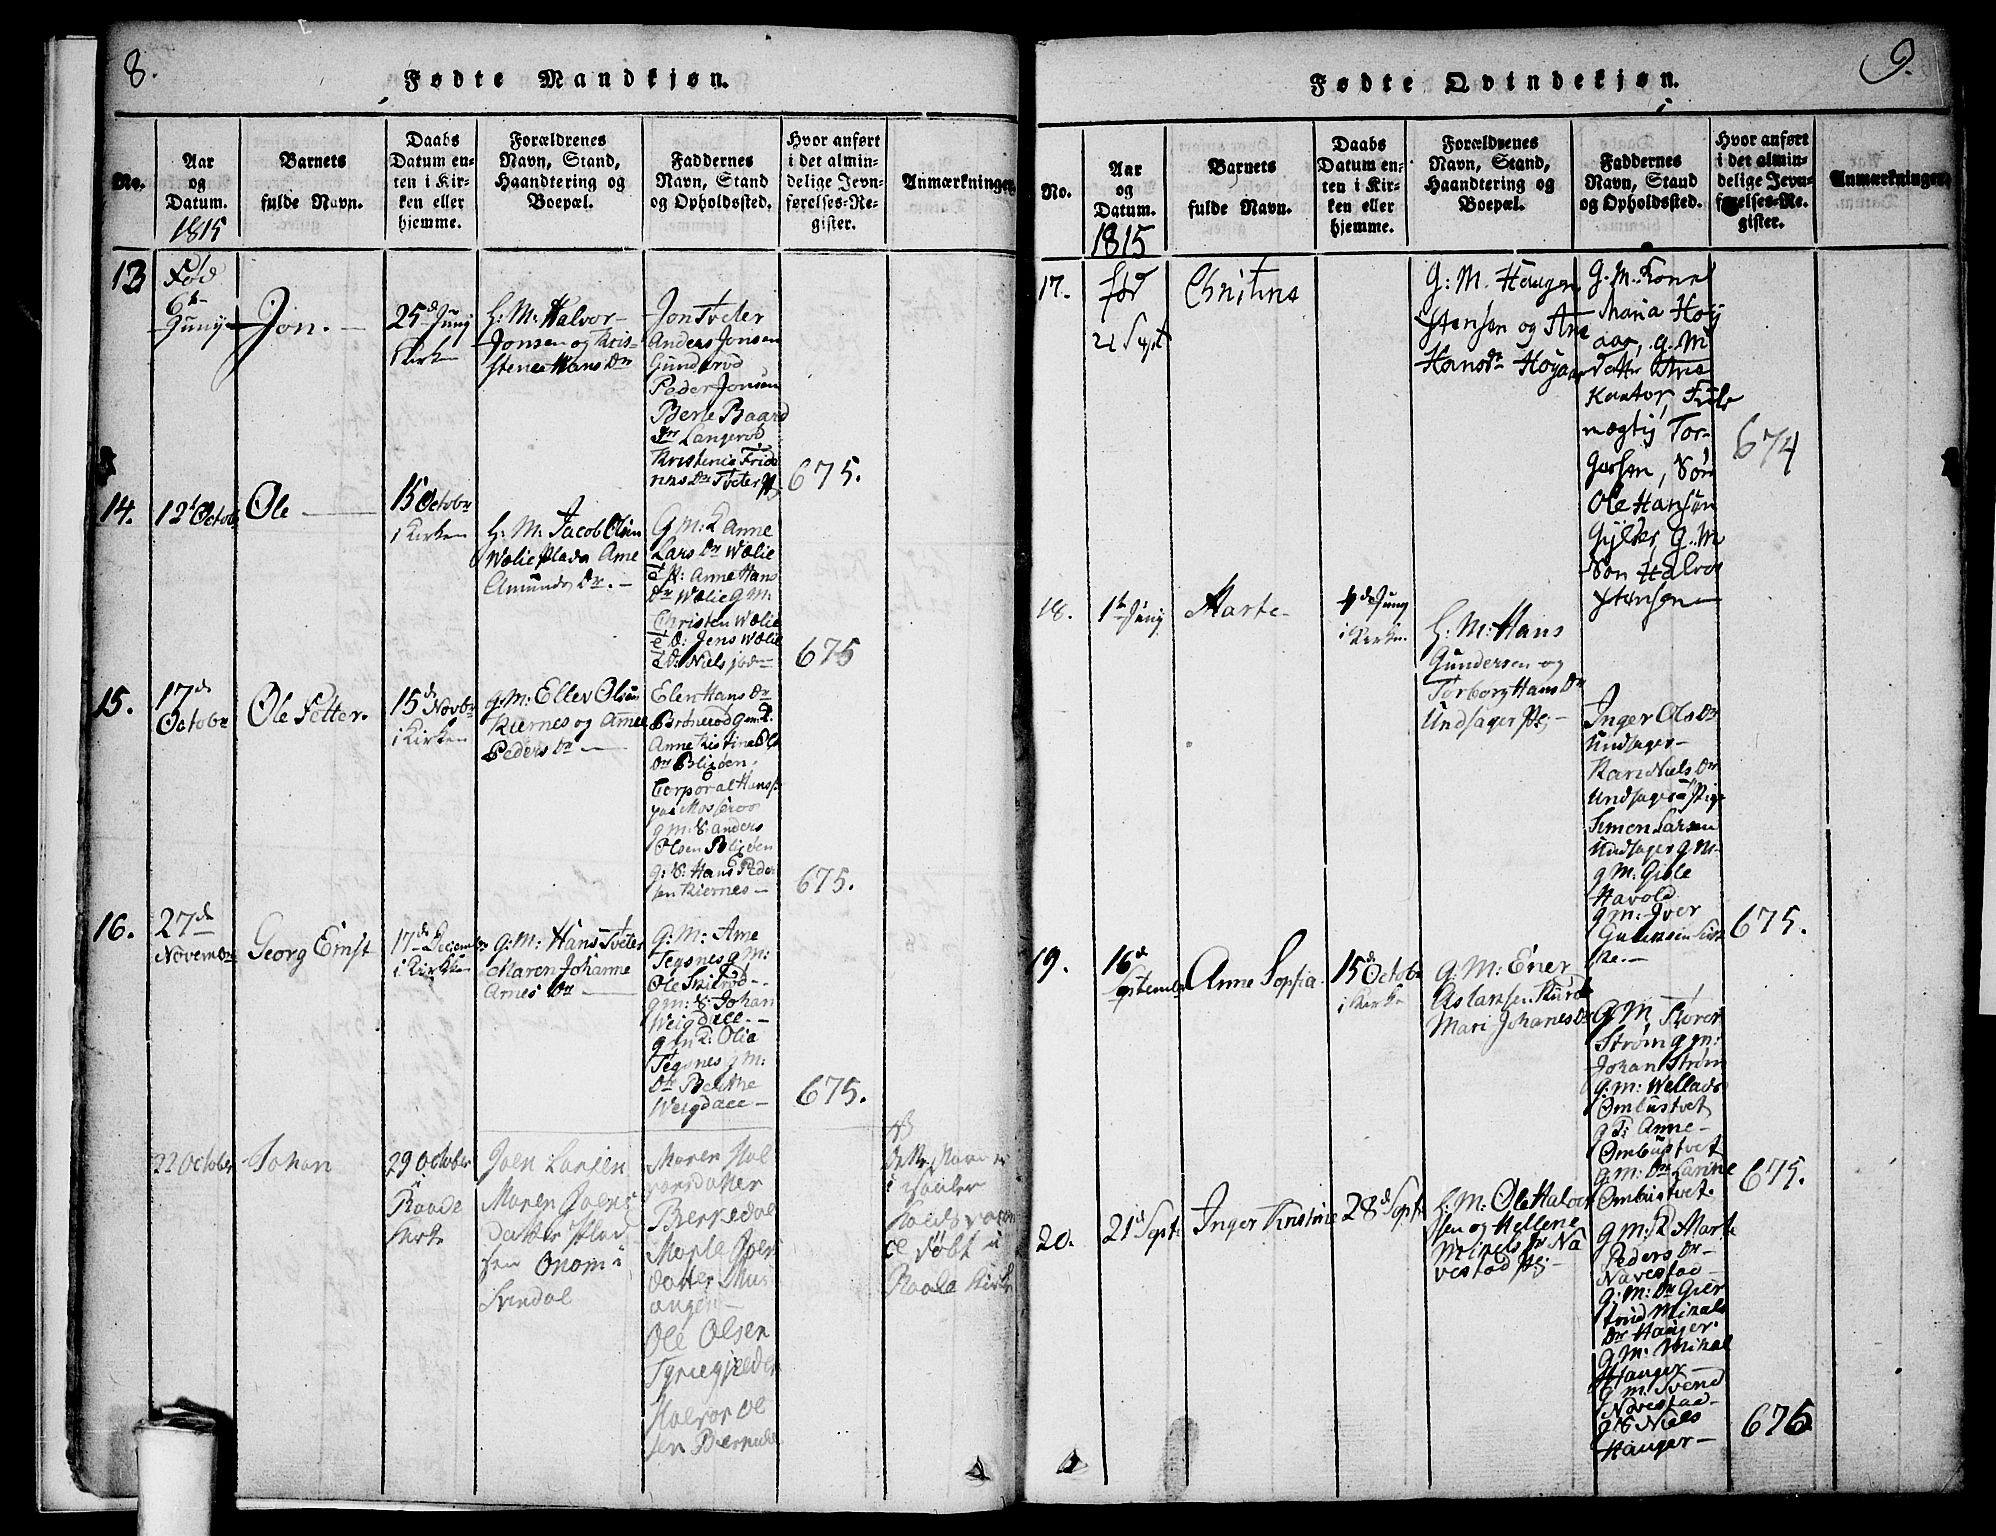 8.
Fødte Mandkjøn.
No.
Aar
og
Datum.
1815
Barnets
fulde Navn.
Daabs
Datum en-
ten i Kir-
ken eller
hjemme.
Forældrenes
Navn, Stand,
Haandtering og
Boepæl.
Faddernes
Navn, Stand
og Opholdssted.
Hvor anført
i det almin-
delige Jevn-
førelses-Re-
gister.
Anmærkninger
13
Fød
6te
Junij
Jon.
25de Junij
i Kirken
H: M: Halvor
Jonsen og Kris-
stene Hans Dr
Jon Tveter
Anders Jonsen
Gunderød
Peder Jonsen
Berte Baard
Dr Langerød
Kristenie
Tveter
675.
14.
12te Octob
Ole
15 Octobr
i Kirken
H: M: Jacob Olsen
Wælie Ane
Amunds Dr.
G: M: K Anne
Lars Dr Wælie
Anne Hans
Dr Wælie g M:
Christen Wælie
Jens Wælie
Niels
675
15.
17de
Octobr
Ole Petter.
15de Novbr
i Kirken
g: M: Ellev Olsen
Kiernes og Anne
Peders Dr
Elen Hans Dr
Brønerød g m: K.
Anne Kistine Ols
Dr Blixøen.
Corporal Hans
Mosseroo
g m: S: anders
Olsen Blixøen
g: S: Hans Peder
sen Kiernes
675.
16.
27de
Novembr
Georg Ernst
17de Decembr
i Kirken
g: M: Hans Tveter
Maren Johanne
Arnes Dr
G: M: Arne
Tegsnes g M:
Ole Skilrød
g m: S: Johan
Weigdall
g m K: Olia
Tegsnes g M:
Dr Berthe
Weigdall
675.
22 October
Johan
29 October
i
Raade
Kirke
Joen Larsen
Maren Joens
datter
Onom i
Svindal
Maren Hal
vorsdatter
Berkedal
Marte Joens
datter
Ole Olsen
Halvor Ol
sen
NB
dette Navn er
i
døbt i
Raade Kirke
9.
Fødte Qvindekjøn.
No.
Aar
og
Datum.
1815
Barnets
fulde Navn.
Daabs
Datum en-
ten i Kir-
ken eller
hjemme.
Forældrenes
Navn, Stand,
Haandtering og
Boepæl.
Faddernes
Navn, Stand
og Opholdssted.
Hvor anført
i det almin-
delige Jevn-
førelses-Re-
gister.
Anmærkninger
17.
før
21 Sept
Christine
G: M. Haagen
Stensen og Ane
Hansdr Høyaas
G. M. Kone
Maria Høy
aas, g. M
dattr Ane
Kantor, Fuld
mægtig Tor-
gersen, Søn
Ole Hansøn
Gylder, G. M
Søn Halvor
Stensen
674
18.
1te Junij
Marte
4de Junij
i Kirken
H: M: Hans
Gundersen og
Torborg Hans Dr
Undsager
Inger Ols Dr
Undsager
Kari Niels Dr
Undsager
Simon Larsen
Undsager g M
g M: Gisle
Havold
g m: Iver
675.
19.
16de
September
Anne Sophia
15de Octobr
i Kirke
g: M: Ener
Aslaksen
Mari Johanes Dr
G M
Strøm g m:
Johan Strøm
g: m: Wellads
Ombustvet
g K: Anne
Ombustvet
g. m: Dr Karine
Ombustvet
675.
20.
21de Sept
Inger Kristine
28de Sept
H: M: Ole Halvor
sen og Hellene
Mikels Dr Na
vestad
g m: K Marte
Peders Dr
Navestad
g: M: Dr Gier
trud Mikals
Dr Hauger
g M: Mikal
Hauger
g m: Svend
Navestad
g S Niels
Hauger
675